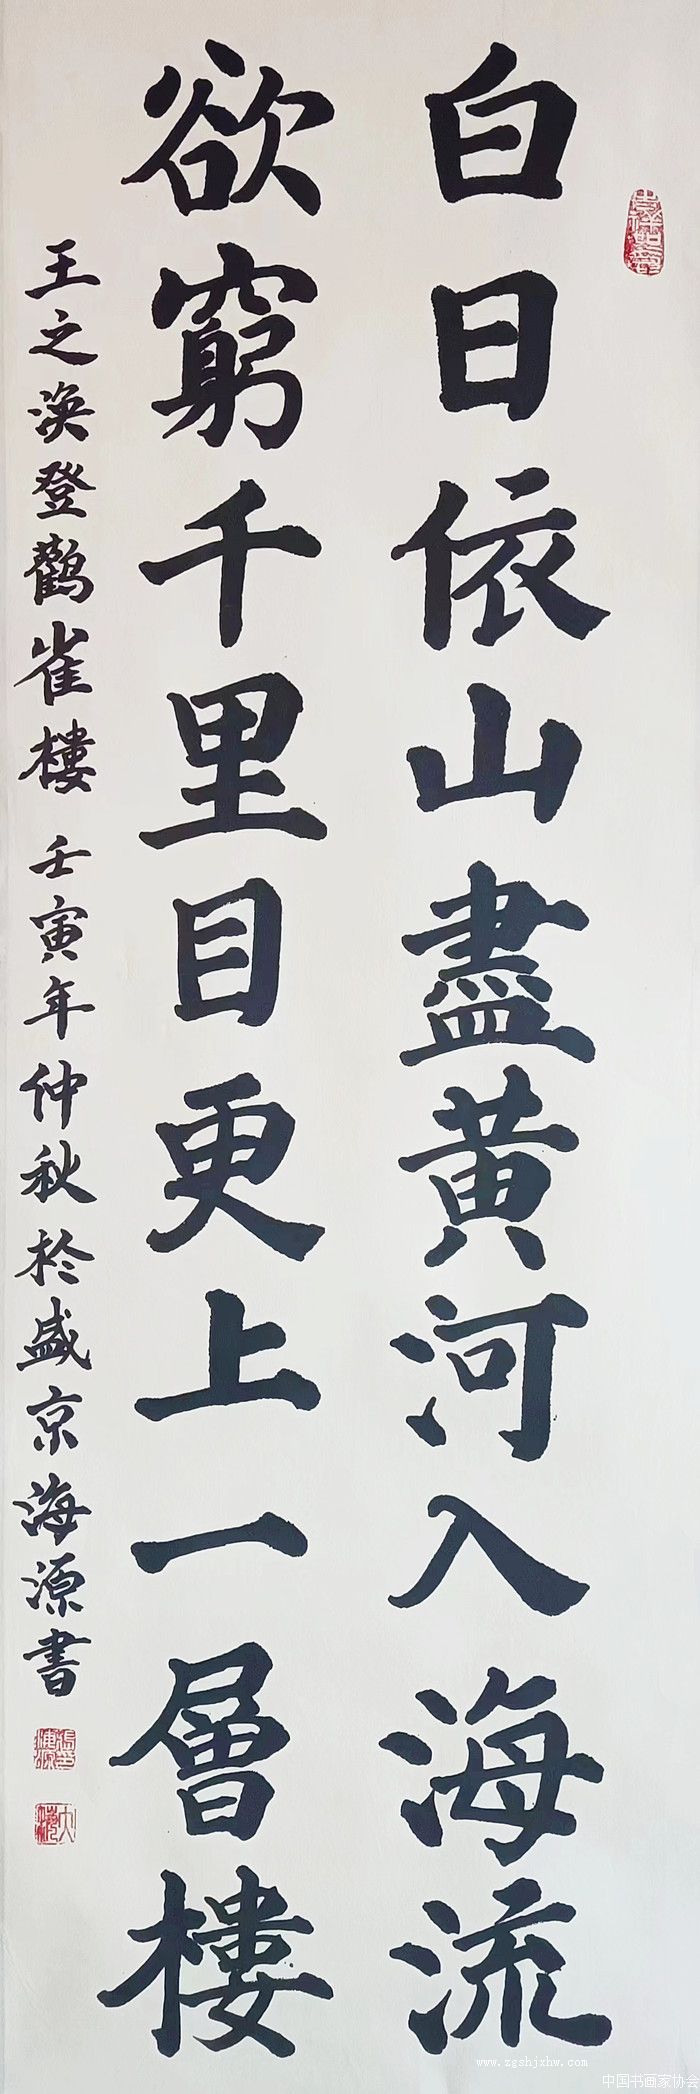 白日依山盡黄河入海流
欲窮千里目更上一層樓
王之渙登鸛雀樓 壬寅年仲秋於盛京海源書
吉祥如意
www.zgshjxhw.com
中国书画家协会